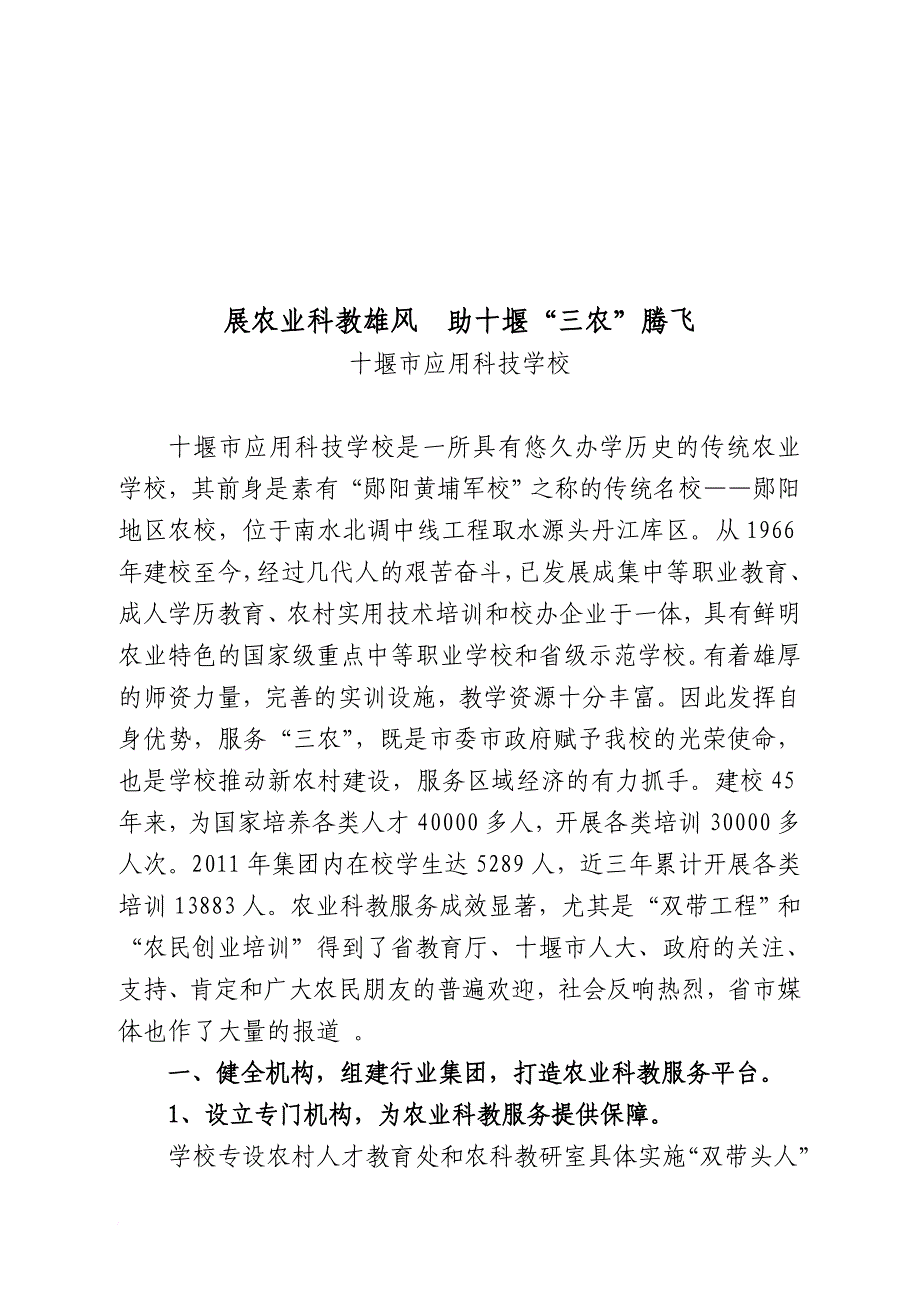 展农业科教雄风　助十堰“三农”腾飞
十堰市应用科技学校
十堰市应用科技学校是一所具有悠久办学历史的传统农业
学校，其前身是素有“郧阳黄埔军校”之称的传统名校——郧阳
地区农校，位于南水北调中线工程取水源头丹江库区。从 1966
年建校至今，经过几代人的艰苦奋斗，已发展成集中等职业教育、
成人学历教育、农村实用技术培训和校办企业于一体，具有鲜明
农业特色的国家级重点中等职业学校和省级示范学校。有着雄厚
的师资力量，完善的实训设施，教学资源十分丰富。因此发挥自
身优势，服务“三农”，既是市委市政府赋予我校的光荣使命，
也是学校推动新农村建设，服务区域经济的有力抓手。建校 45
年来，为国家培养各类人才 40000 多人，开展各类培训 30000 多
人次。2011 年集团内在校学生达 5289 人，近三年累计开展各类
培训 13883 人。农业科教服务成效显著，尤其是“双带工程”和
“农民创业培训”得到了省教育厅、十堰市人大、政府的关注、
支持、肯定和广大农民朋友的普遍欢迎，社会反响热烈，省市媒
体也作了大量的报道 。
一、健全机构，组建行业集团，打造农业科教服务平台。
1、设立专门机构，为农业科教服务提供保障。
学校专设农村人才教育处和农科教研室具体实施“双带头人”